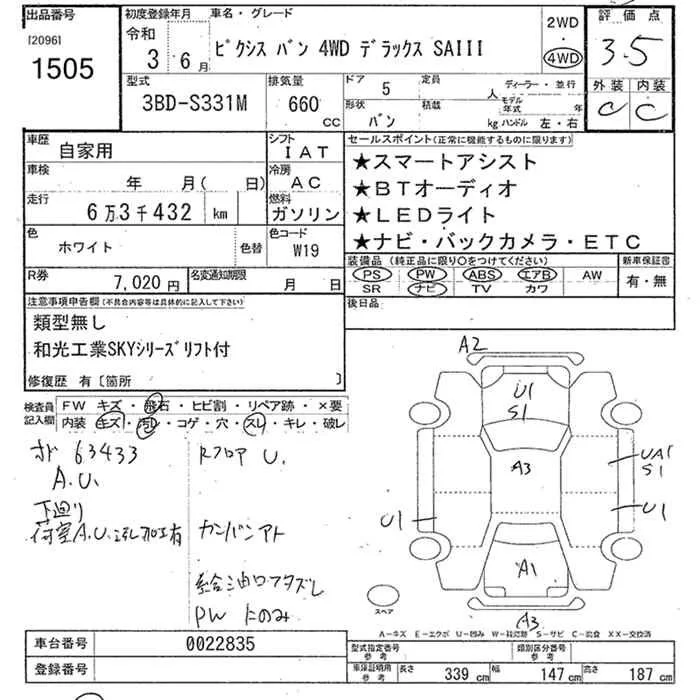 出品番号
[2096]
1505
初度登録年月
令和
3 年 6 月
車名・グレード
ピクシス バン 4WD デラックス SAIII
2WD
・
4WD
評価点
3.5
外装 内装
C C
型式
3BD-S331M
排気量
660 CC
ドア 5
形状
バン
定員 人
積載 kg
ディーラー・並行
モデル年式 年
ハンドル 左・右
車歴
自家用
シフト
IAT
車検
年 月( 日)
冷房
AC
走行
6万3千432 km
燃料
ガソリン
色
ホワイト
色替
色コード
W19
R券
7,020円
名変通知期限
月 日
セールスポイント(正常に機能するものに限ります)
★スマートアシスト
★BTオーディオ
★LEDライト
★ナビ・バックカメラ・ETC
装備品(純正品に限り○をつけてください)
PS PW ABS エアB AW
SR ナビ TV カワ
新車保証書
有・無
後日品
注意事項申告欄(不具合内容等は具体的に記入して下さい)
類型無し
和光工業SKYシリーズリフト付
修復歴 有〔箇所 〕
検査員記入欄
FW キズ・飛石・ヒビ割・リペア跡・×要
内装 キズ・汚レ・コゲ・穴・スレ・キレ・破レ
63433
A.U.
下廻り
荷室A.U. 加工有
RフロアU.
カンバンアト
給油口フタズレ
PWﾋﾉﾐ
A2
U1
S1
A3
UA1
S1
U1
U1
A1
A3
スペア
A-キズ E-エクボ U-凹み W-補修跡 S-サビ C-腐食 XX-交換済
車台番号
0022835
登録番号
型式指定番号
参考
類別区分番号
参考
車庫証明用
参考
長さ 339 cm 幅 147 cm 高さ 187 cm